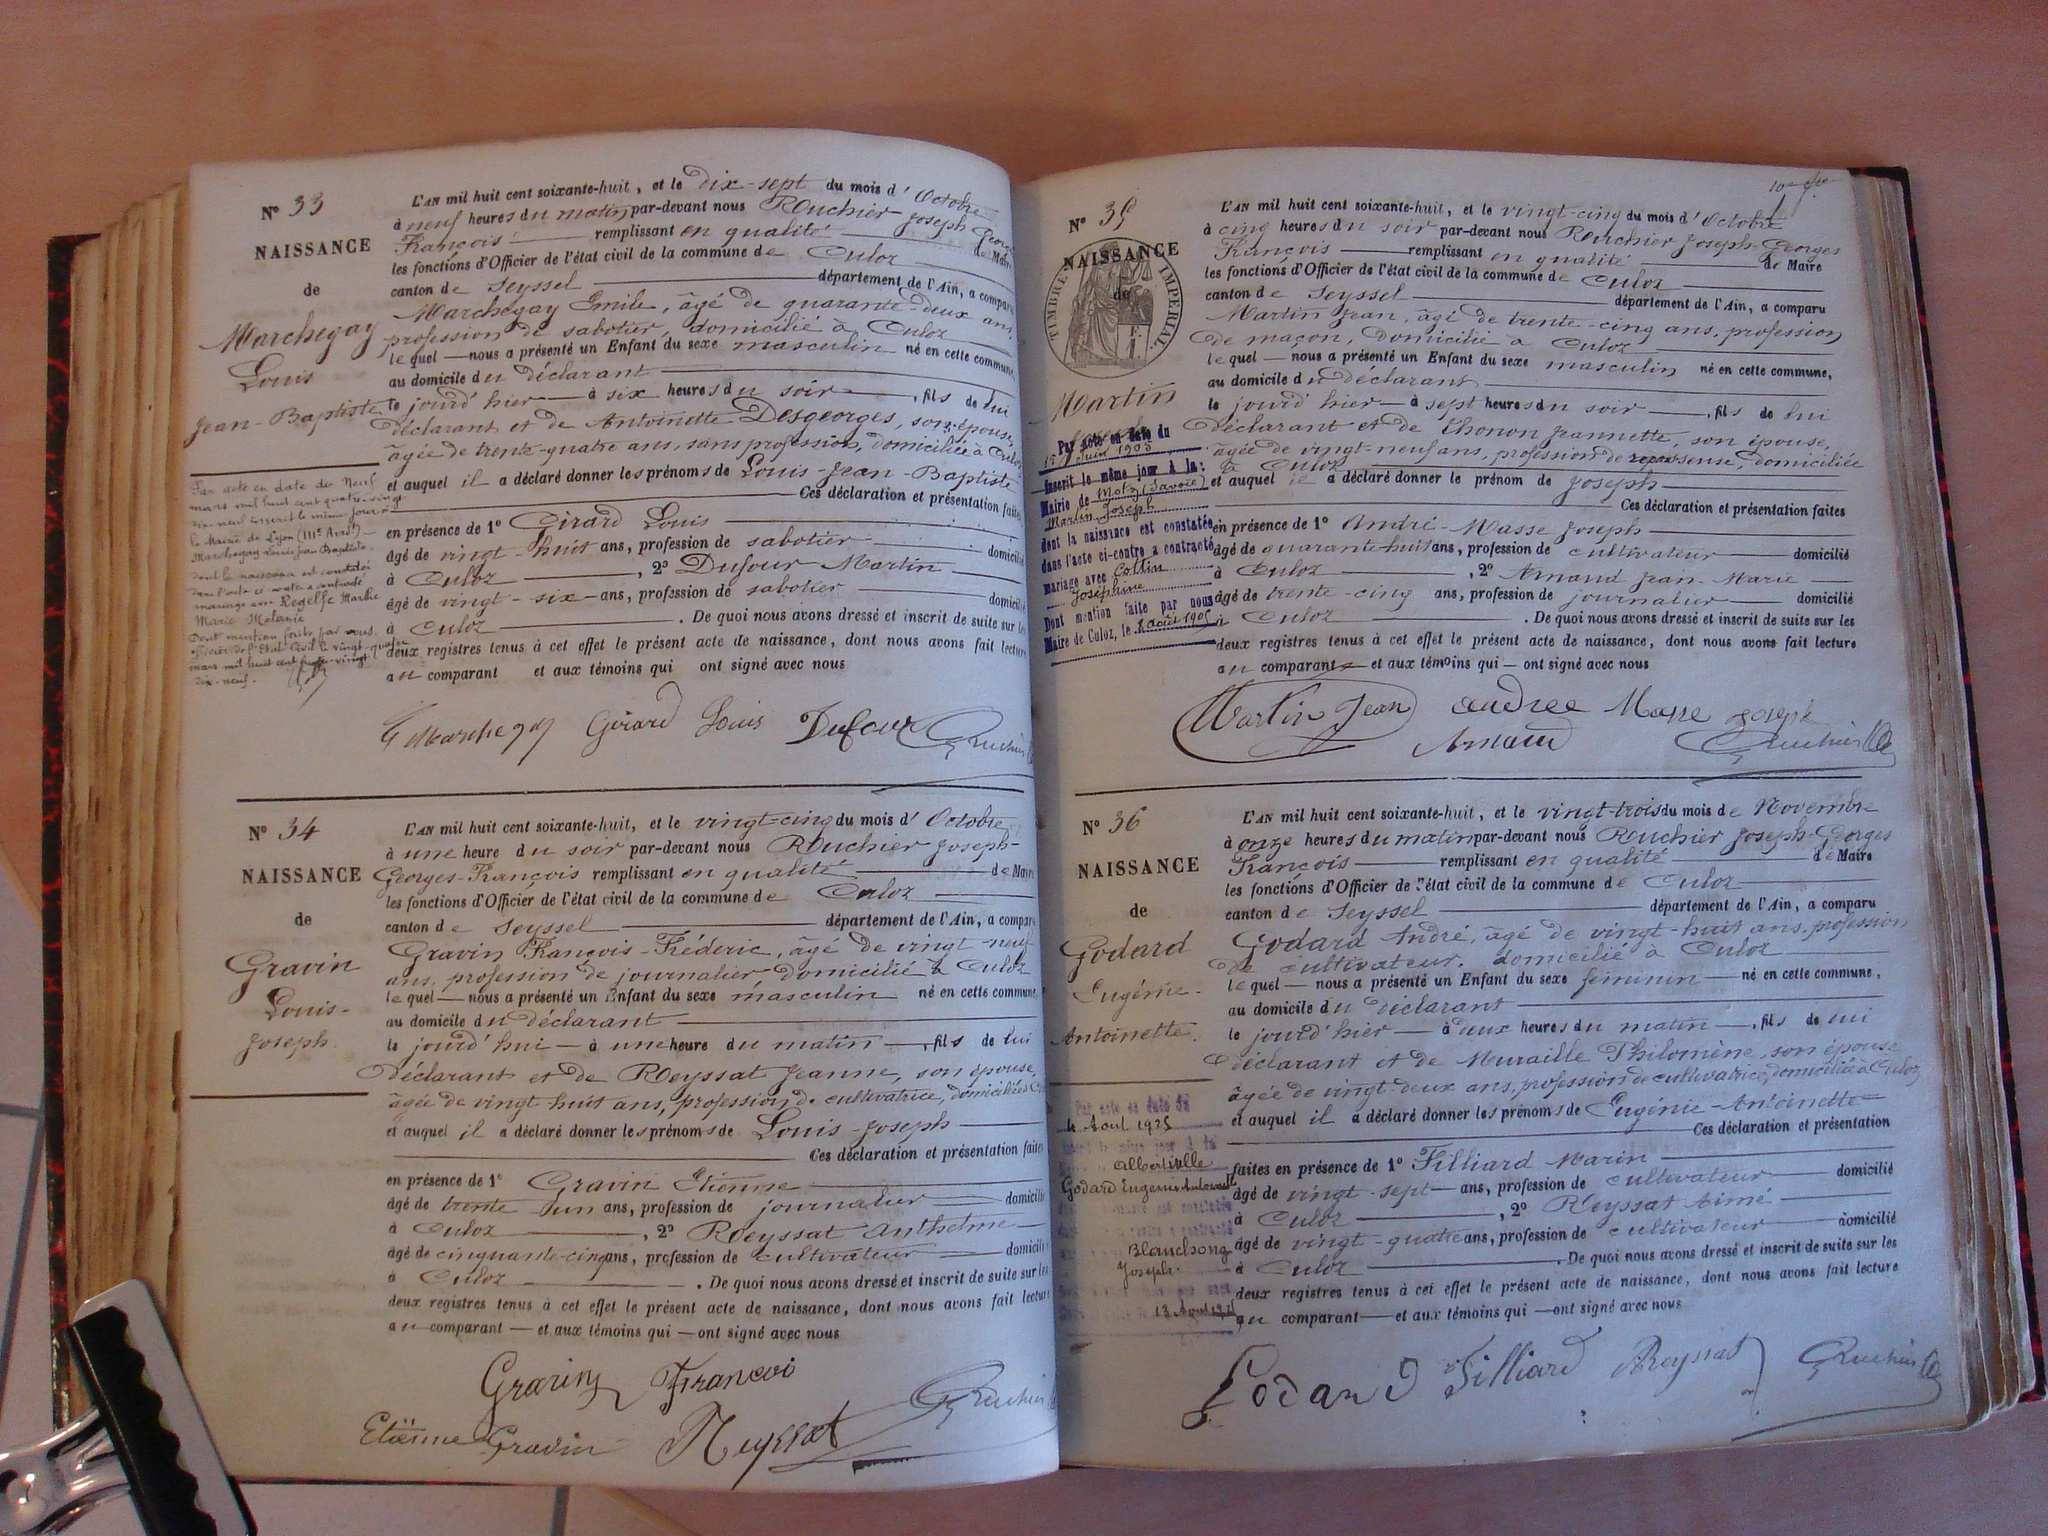 N° 33
NAISSANCE
de
Marchegay
Louis
Jean-Baptiste
Par acte en date du Neuf
mars mil huit cent quatre-vingt
dix neuf inscrit le même jour à
la Mairie de Lyon (IIIe Arrdt)
Marchegay Louis Jean Baptiste
dont la naissance est constatée
dans l'acte ci-contre a contracté
mariage avec Marthe
Marie Mélanie
Dont mention faite par nous
officier de l'Etat Civil le vingt-quatre
mars mil huit cent quatre-vingt
dix-neuf.
L'AN mil huit cent soixante-huit, et le dix-sept du mois d'Octobre
à neuf heures du matin par-devant nous Rouchier Joseph Georges
François remplissant en qualité de Maire
les fonctions d'Officier de l'état civil de la commune de Culoz
canton de Seyssel département de l'Ain, a comparu
Marchegay Emile, âgé de quarante-deux ans,
profession de sabotier, domicilié à Culoz
lequel nous a présenté un Enfant du sexe masculin né en cette commune,
au domicile du déclarant
le jourd'hier à six heures du soir, fils de lui
déclarant et de Antoinette Desgeorges, son épouse,
âgée de trente-quatre ans, sans profession, domiciliée à Culoz
et auquel il a déclaré donner les prénoms de Louis-Jean-Baptiste
Ces déclaration et présentation faites
en présence de 1° Girard Louis
âgé de vingt-huit ans, profession de sabotier domicilié
à Culoz, 2° Dufour Martin
âgé de vingt-six ans, profession de sabotier domicilié
à Culoz. De quoi nous avons dressé et inscrit de suite sur les
deux registres tenus à cet effet le présent acte de naissance, dont nous avons fait lecture
au comparant et aux témoins qui ont signé avec nous
Marchegay Girard Louis Dufour Rouchier
N° 34
NAISSANCE
de
Gravin
Louis-
Joseph
L'AN mil huit cent soixante-huit, et le vingt-cinq du mois d'Octobre
à une heure du soir par-devant nous Rouchier Joseph-
Georges-François remplissant en qualité de Maire
les fonctions d'Officier de l'état civil de la commune de Culoz
canton de Seyssel département de l'Ain, a comparu
Gravin François-Fréderic, âgé de vingt-neuf
ans, profession de journalier domicilié à Culoz
lequel nous a présenté un Enfant du sexe masculin né en cette commune,
au domicile du déclarant
le jourd'hui à une heure du matin, fils de lui
déclarant et de Reyssat Jeanne, son épouse,
âgée de vingt-huit ans, profession de cultivatrice, domiciliée à Culoz
et auquel il a déclaré donner les prénoms de Louis-Joseph
Ces déclaration et présentation faites
en présence de 1° Gravin Etienne
âgé de trente-un ans, profession de journalier domicilié
à Culoz, 2° Reyssat Anthelme
âgé de cinquante-cinq ans, profession de cultivateur domicilié
à Culoz. De quoi nous avons dressé et inscrit de suite sur les
deux registres tenus à cet effet le présent acte de naissance, dont nous avons fait lecture
au comparant et aux témoins qui ont signé avec nous
Gravin Francoi
Etiënne Gravin Reyssat Rouchier
N° 35
NAISSANCE
de
TIMBRE IMPERIAL
Martin
Par acte en date du
15 Juin 1905
Inscrit le même jour à la
Mairie de Motz (Savoie)
Martin Joseph
dont la naissance est constatée
dans l'acte ci-contre a contracté
mariage avec Collin
Joséphine
Dont mention faite par nous
Maire de Culoz, le 2 août 1905
L'AN mil huit cent soixante-huit, et le vingt-cinq du mois d'Octobre
à cinq heures du soir par-devant nous Rouchier Joseph-Georges
François remplissant en qualité de Maire
les fonctions d'Officier de l'état civil de la commune de Culoz
canton de Seyssel département de l'Ain, a comparu
Martin Jean, âgé de trente-cinq ans, profession
de maçon, domicilié à Culoz
lequel nous a présenté un Enfant du sexe masculin né en cette commune,
au domicile du déclarant
le jourd'hier à sept heures du soir, fils de lui
déclarant et de Thonon Jeannette, son épouse,
âgée de vingt-neuf ans, profession de repasseuse, domiciliée
à Culoz
et auquel il a déclaré donner le prénom de Joseph
Ces déclaration et présentation faites
en présence de 1° André-Masse Joseph
âgé de quarante-huit ans, profession de cultivateur domicilié
à Culoz, 2° Amand Jean-Marie
âgé de trente-cinq ans, profession de journalier domicilié
à Culoz. De quoi nous avons dressé et inscrit de suite sur les
deux registres tenus à cet effet le présent acte de naissance, dont nous avons fait lecture
au comparant et aux témoins qui ont signé avec nous
Martin Jean andree Masse joseph
Amand Rouchier
N° 36
NAISSANCE
de
Godard
Eugénie-
Antoinette.
Par acte en date du
4 Aout 1925
Albertville
Godard Eugénie Antoinette
Blanchong
Joseph.
13 Aout 1925
L'AN mil huit cent soixante-huit, et le vingt-trois du mois de Novembre
à onze heures du matin par-devant nous Rouchier Joseph-Georges
François remplissant en qualité de Maire
les fonctions d'Officier de l'état civil de la commune de Culoz
canton de Seyssel département de l'Ain, a comparu
Godard André, âgé de vingt-huit ans, profession
de cultivateur, domicilié à Culoz
lequel nous a présenté un Enfant du sexe féminin né en cette commune,
au domicile du déclarant
le jourd'hier à deux heures du matin, fils de lui
déclarant et de Muraille Philomène, son épouse
âgée de vingt-deux ans, profession de cultivatrice, domiciliée à Culoz
et auquel il a déclaré donner les prénoms de Eugénie-Antoinette
Ces déclaration et présentation
faites en présence de 1° Filliard Marin
âgé de vingt-sept ans, profession de cultivateur domicilié
à Culoz, 2° Reyssat Aimé
âgé de vingt-quatre ans, profession de cultivateur domicilié
à Culoz. De quoi nous avons dressé et inscrit de suite sur les
deux registres tenus à cet effet le présent acte de naissance, dont nous avons fait lecture
au comparant et aux témoins qui ont signé avec nous
Godard Filliard Reyssat Rouchier